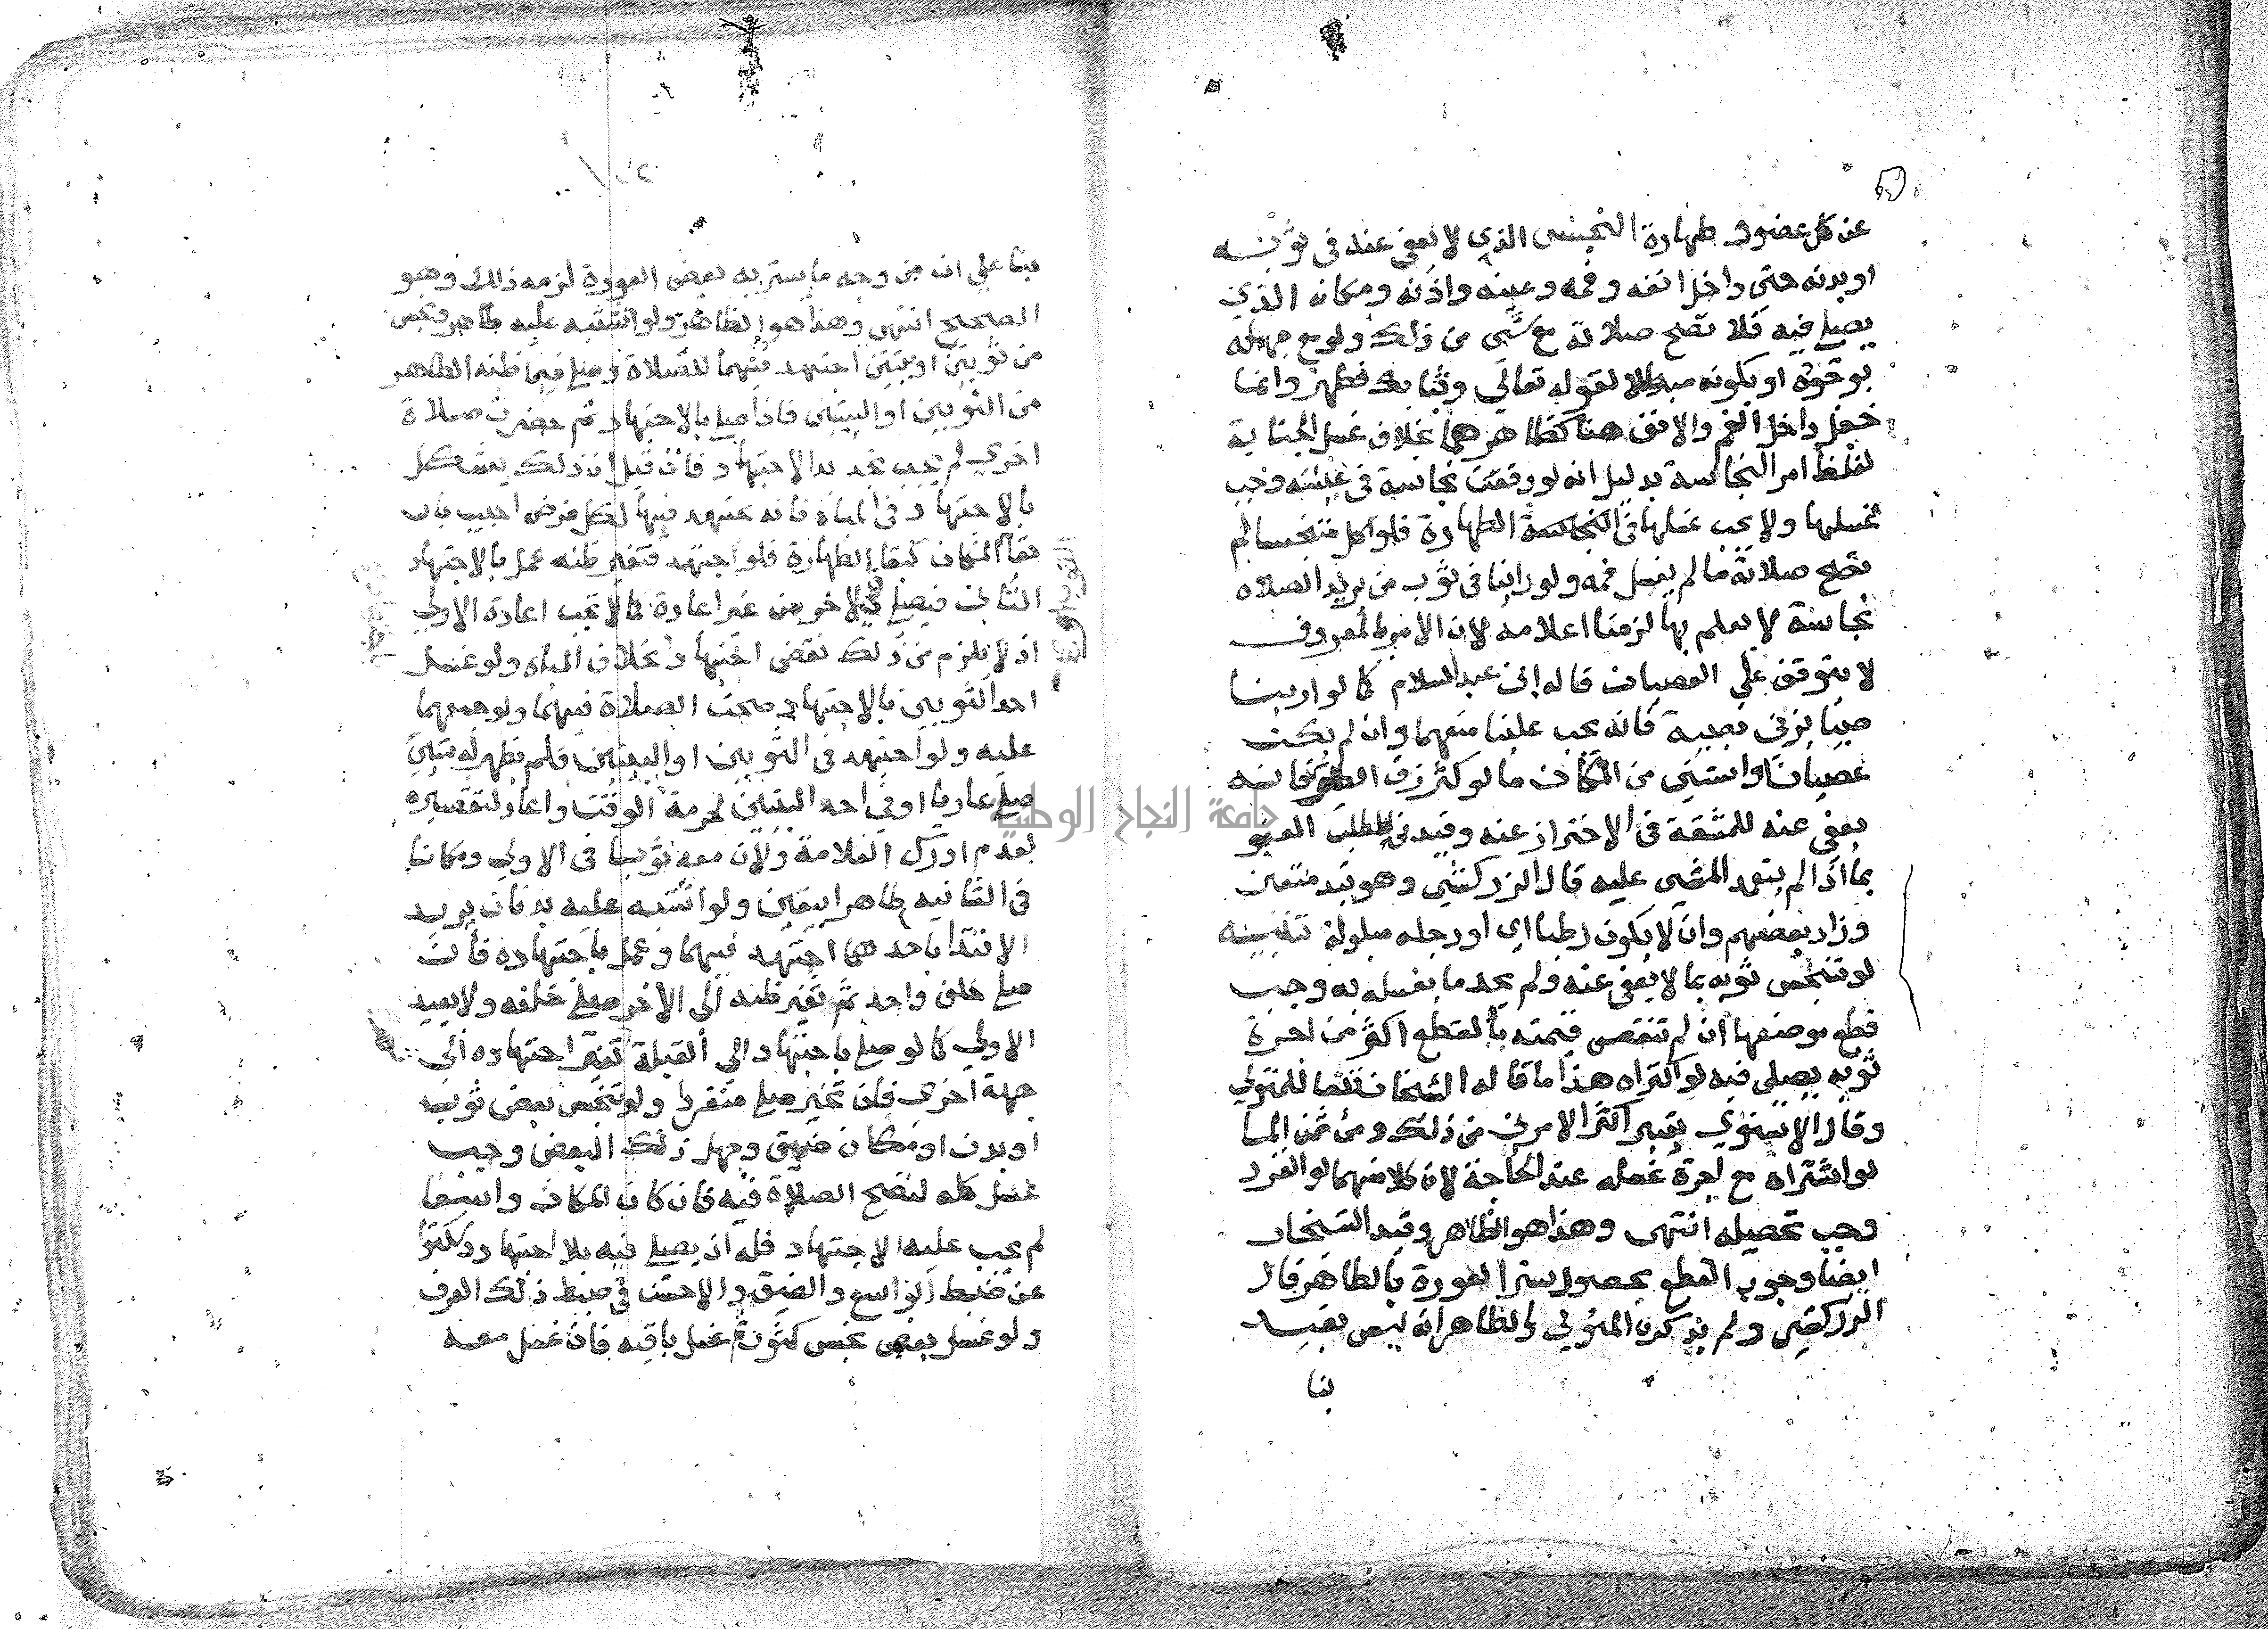 عن كل عضو و طهارة النجس الذي لا يعفى عنه في ثوبه
او بدنه حتى داخل انفه و فمه و عينه واذنه و مكانه الذي
يصلي فيه فلا تصح صلاته مع شي من ذلك ولو مع جهله
بوجوده او بكونه مبطلا لقوله تعالي وثيابك فطهر وانما
جعل داخل الفم والانف هنا كظاهرهما بخلاف غسل الجنابة
لغلظ امر النجاسة بدليل انه لو وقعت نجاسة في عينه وجب
غسلها ولا يجب غسلها في الطهارة فلو اكل متنجسا لم
تصح صلاته ما لم يغسل فمه ولو راينا في ثوب من يريد الصلاه
نجاسة لا يعلم بها لزمنا اعلامه لان الامر بالمعروف
لا يتوقف علي العصيان قاله ابن عبد السلام كما لو راينا
صبيا يزني بصبية فانه يجب علينا منعهما وان لم يكن
عصيانا واستثني من المكان ما لو كثر زرق الطيور فانه
يعفى عنه للمشقة في الاحتراز عنه وقيد في المطلب العفو
بما اذا لم يتعمد المشي عليه قال الزركشي وهو قيد متعين
وزاد بعضهم وان لا يكون رطبا اي او رجله مبلولة تنبيه
لو تنجس ثوبه بما لا يعفى عنه ولم يجد ما يغسله به وجب
قطع موضعها ان لم تنقص قيمته بالقطع اكثر من اجرة
ثوب يصلي فيه لو اكتراه هذا ما قاله الشيخان تبعا للمتولي
وقال الاسنوي يعتبر اكثر الامرين من ذلك ومن ثمن الما
لو اشتراه مع اجرة غسله عند الحاجة لان كلا منهما لو انفرد
وجب تحصيله انتهى وهذا هو الظاهر وقيد الشيخان
ايضا وجوب القطع بحصول ستر العورة بالطاهر قال
الزركشي ولم يذكره المتولي والظاهر انه ليس بقيد
بنا
بنا علي ان من وجد ما يستر به بعض العورة لزمه ذلك وهو
الصحيح انتهى وهذا هو الظاهر ولو اشتبه عليه طاهر ونجس
من ثوبين او بيتين اجتهد فيهما للصلاة وصلي فيما ظنه الطاهر
من الثوبين او البيتين فاذا صلي بالاجتهاد ثم حضرت صلاة
اخري لم يجب تجديد الاجتهاد فان قيل ان ذلك يشكل
بالاجتهاد في المياه فانه يجتهد فيها لكل فرض اجيب بان
بقا المكان كبقا الطهارة فلو اجتهد فتغير ظنه عمل بالاجتهاد
الثاني فيصلي في الاخر من غير اعادة كما لا تجب اعادة الاولي
اذ لا يلزم من ذلك نقض اجتهاد بخلاف المياه ولو غسل
احد الثوبين بالاجتهاد صحت الصلاة فيهما ولو جمعهما
عليه ولو اجتهد في الثوبين او البيتين فلم يظهر له شي
صلي عاريا او في احد البيتين لحرمة الوقت واعاد لتقصيره
بعدم ادراك العلامة ولان معه ثوبا في الاولي ومكانا
في الثانيه طاهرا بيقين ولو اشتبه عليه بدنان يريد
الاقتدا باحدهما اجتهد فيهما وعمل باجتهاده فان
صلي خلف واحد ثم تغير ظنه الى الاخر صلي خلفه ولا يعيد
الاولي كما لو صلي باجتهاد الى القبلة ثم تغير اجتهاده الى
جهة اخرى فان تحير صلي منفردا ولو تنجس بعض ثوب
او بدن او مكان ضيق وجهل ذلك البعض وجب
غسل كله لتصح الصلاة فيه فان كان المكان واسعا
لم يجب عليه الاجتهاد فله ان يصلي فيه بلا اجتهاد وسكتوا
عن ضبط الواسع والضيق والاحسن في ضبط ذلك العرف
ولو غسل بعض نجس كثوب ثم غسل باقيه فان غسل معه
جامعة النجاح الوطنية